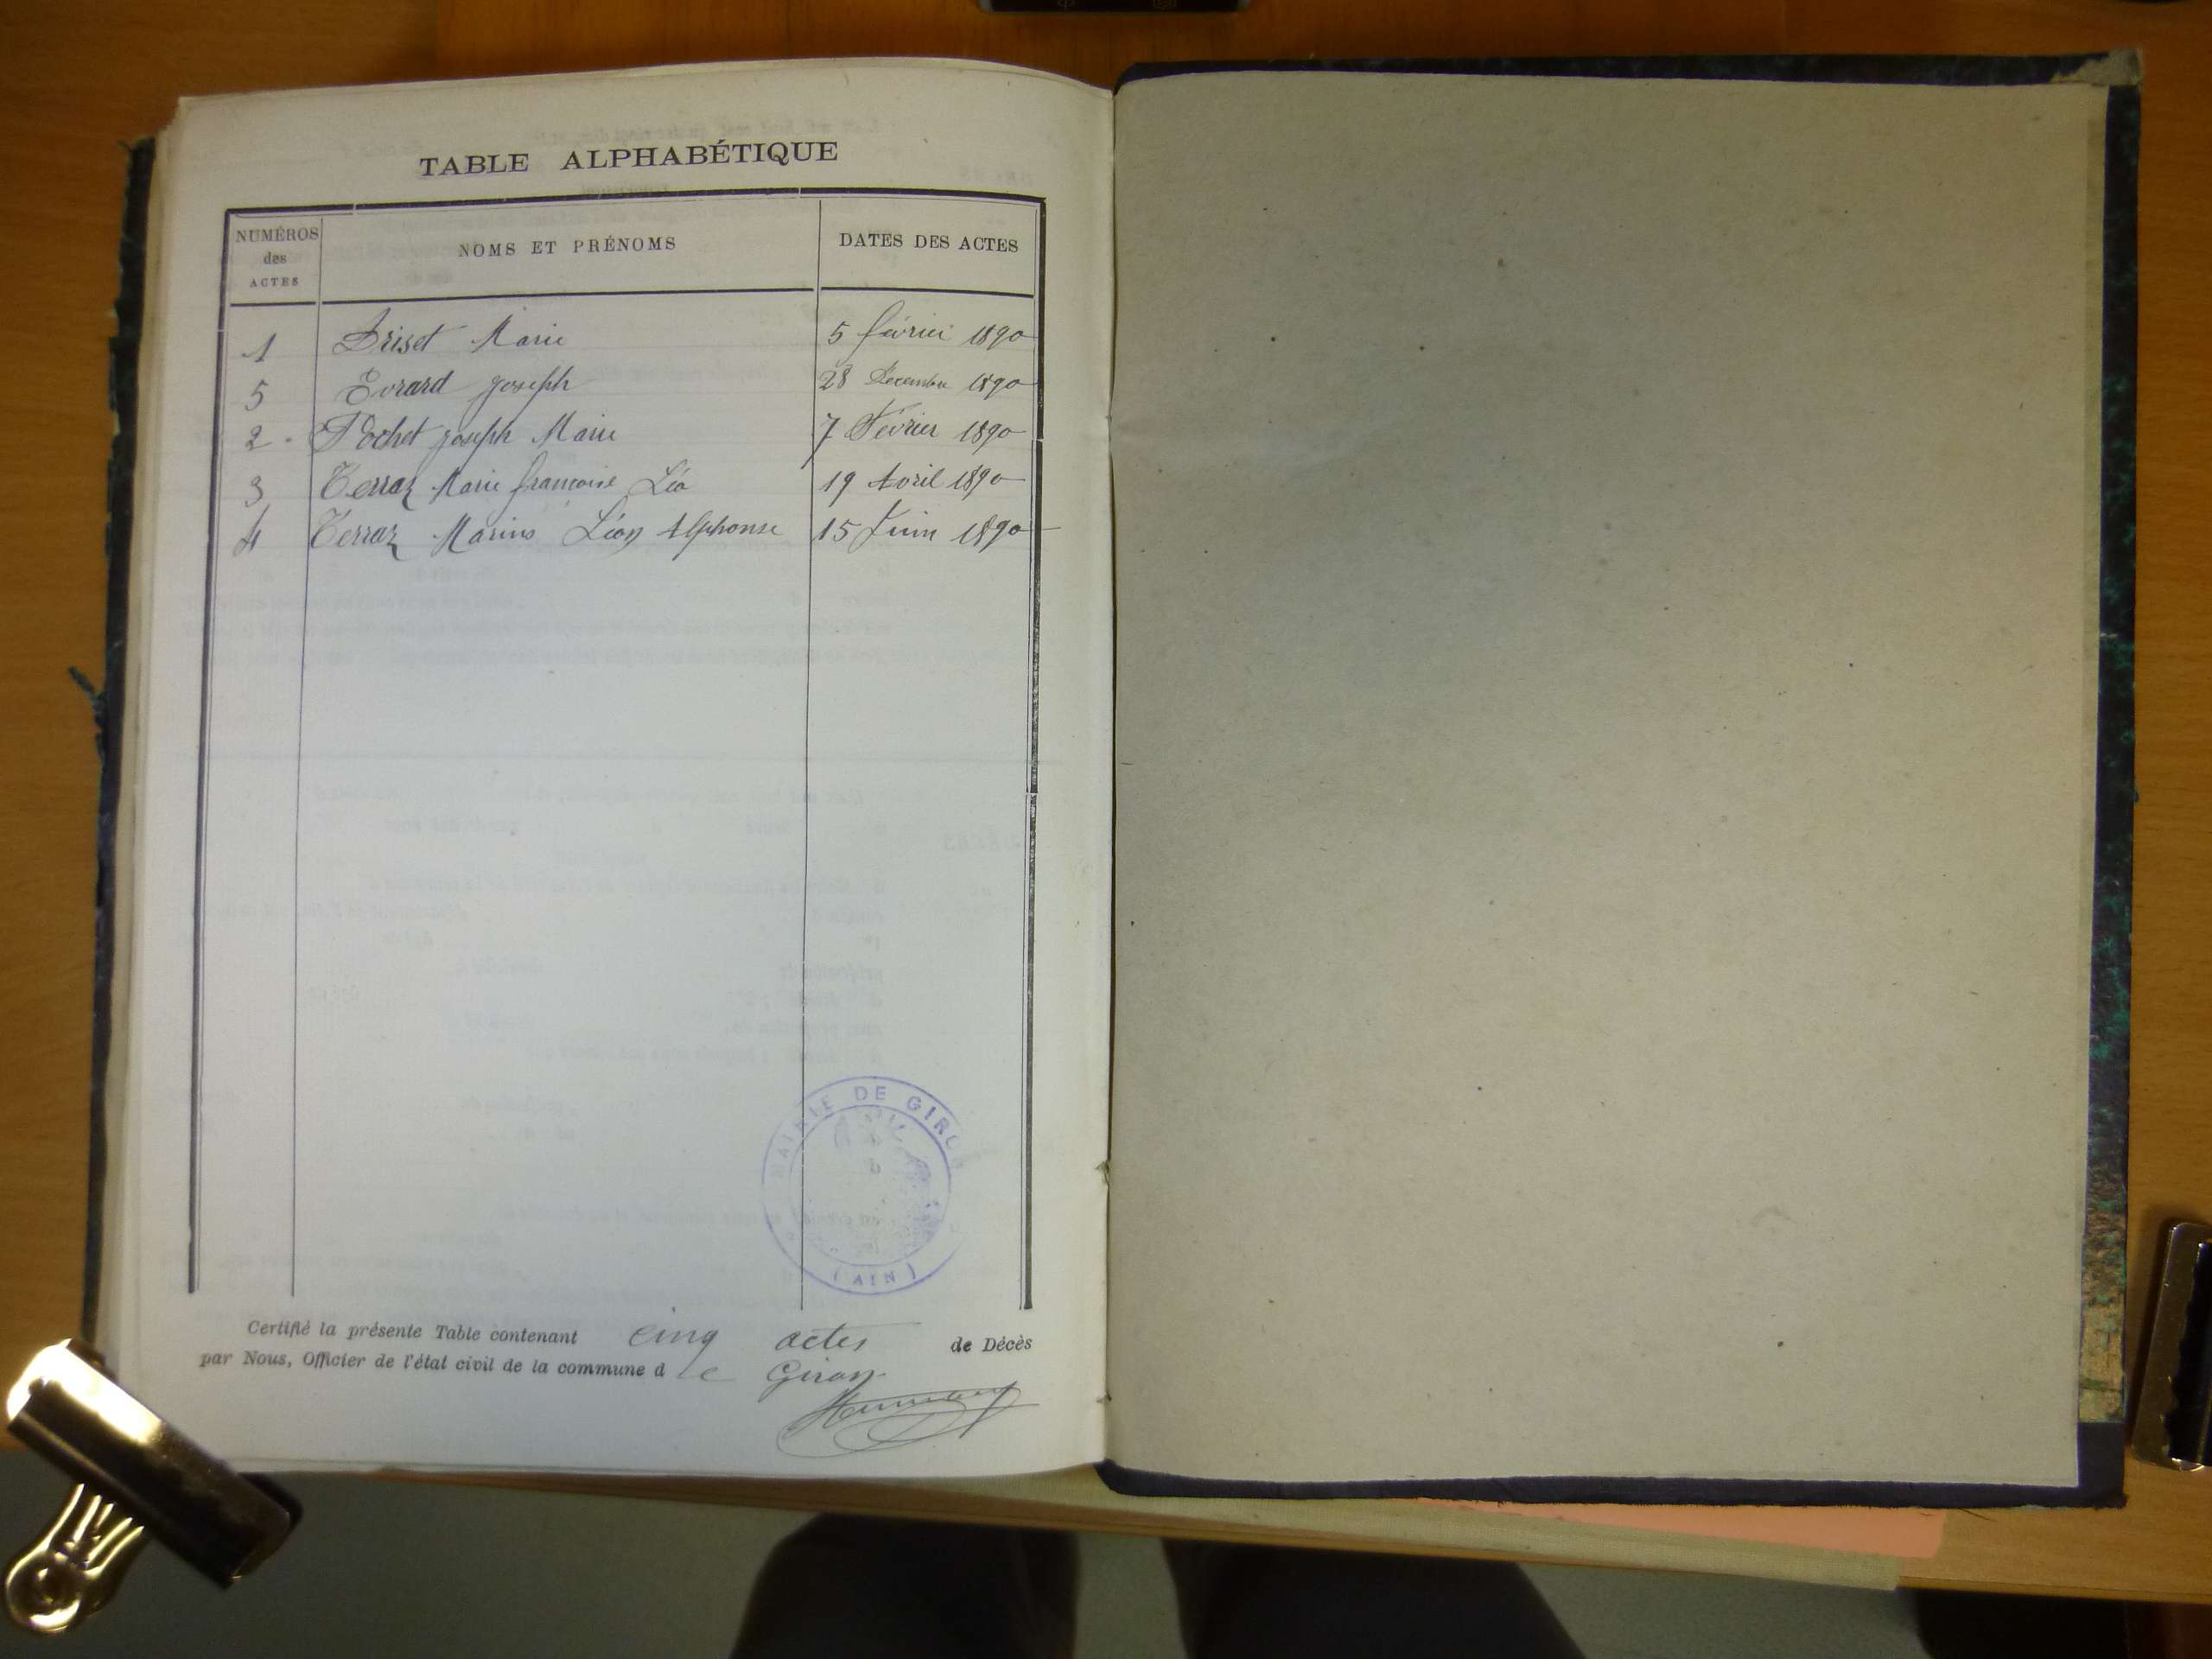 TABLE ALPHABÉTIQUE
NUMÉROS des ACTES
NOMS ET PRÉNOMS
DATES DES ACTES
1 Driset Marie 5 février 1890
5 Evrard Joseph 28 Decembre 1890
2 Pochet Joseph Marie 7 Février 1890
3 Terraz Marie françoise Léa 19 Avril 1890
4 Terraz Marius Léon Alphonse 15 Juin 1890
MAIRIE DE GIRON
(AIN)
Certifié la présente Table contenant cinq actes de Décès
par Nous, Officier de l'état civil de la commune d e Giron